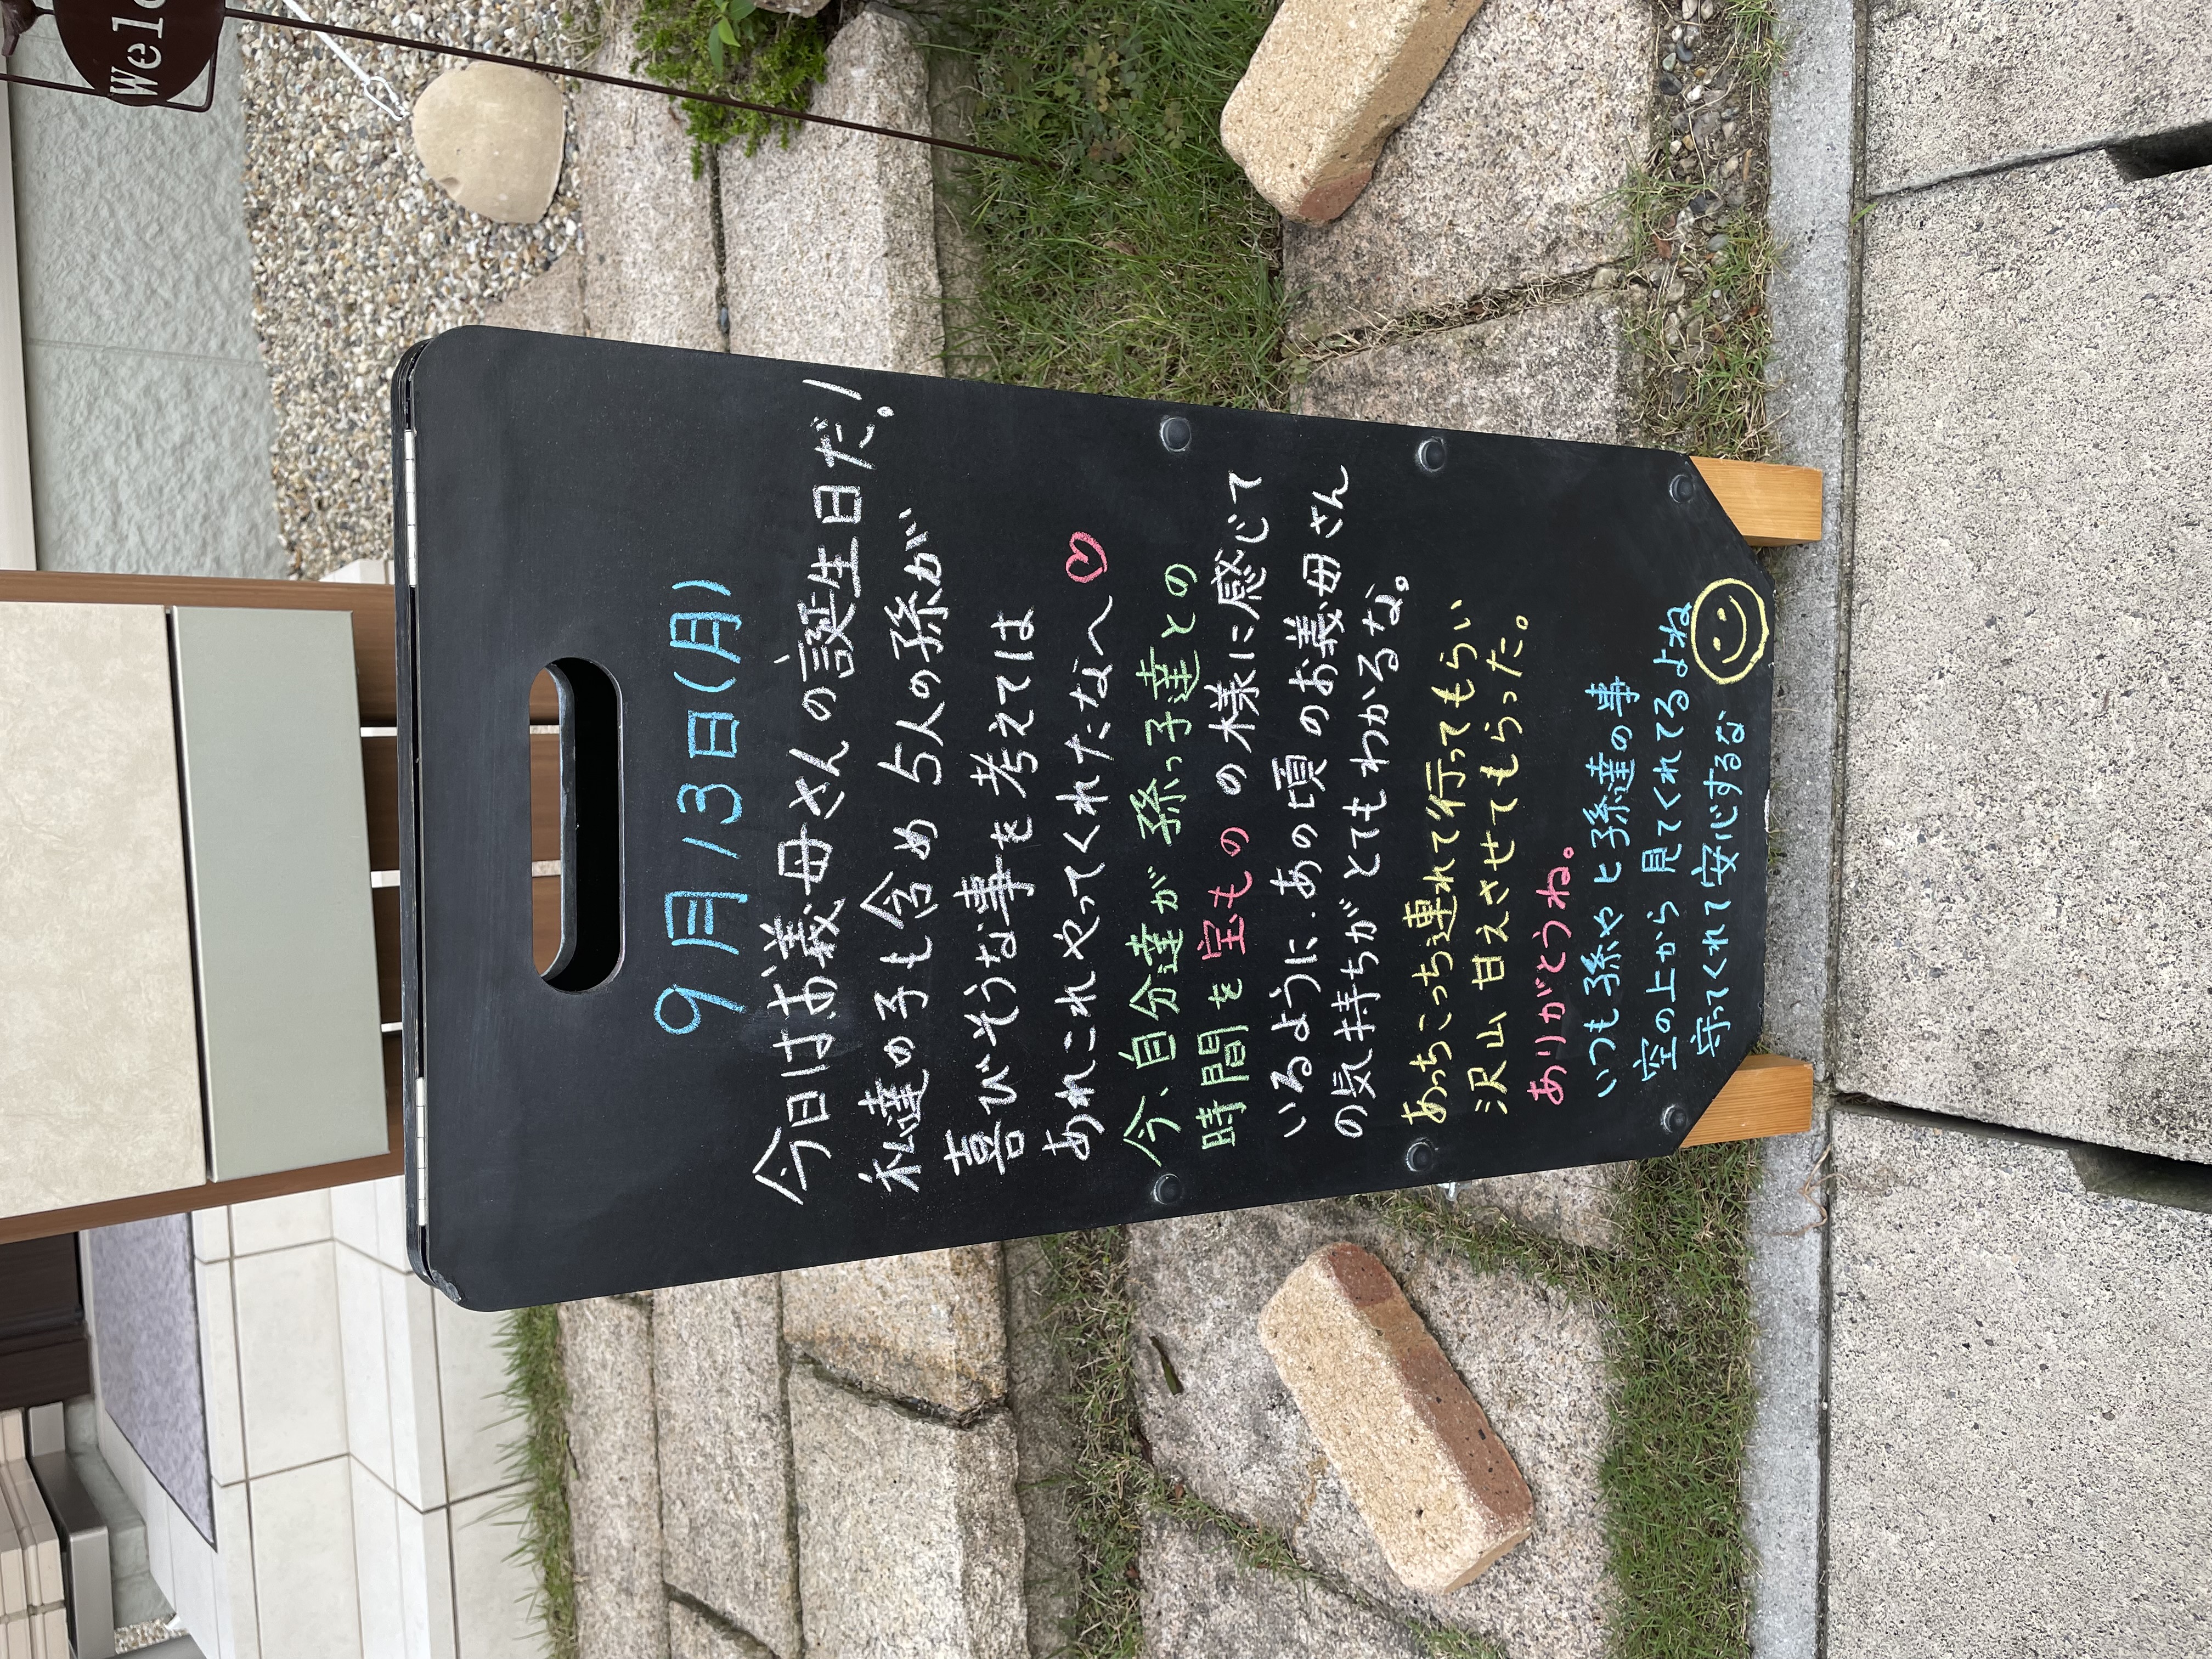 Welc
9月13日(月)
今日はお義母さんの誕生日だ!
私達の子も含め5人の孫が
喜びそうな事を考えては
あれこれやってくれたなへ♡
今、自分達が孫っ子達との
時間を宝もの の様に感じて
いるように、あの頃のお義母さん
の気持ちがとてもわかるな。
あっちこっち連れて行ってもらい
沢山甘えさせてもらった。
ありがとうね。
いつも孫やヒ孫達の事
空の上から見てくれてるよね
守ってくれて安心するな